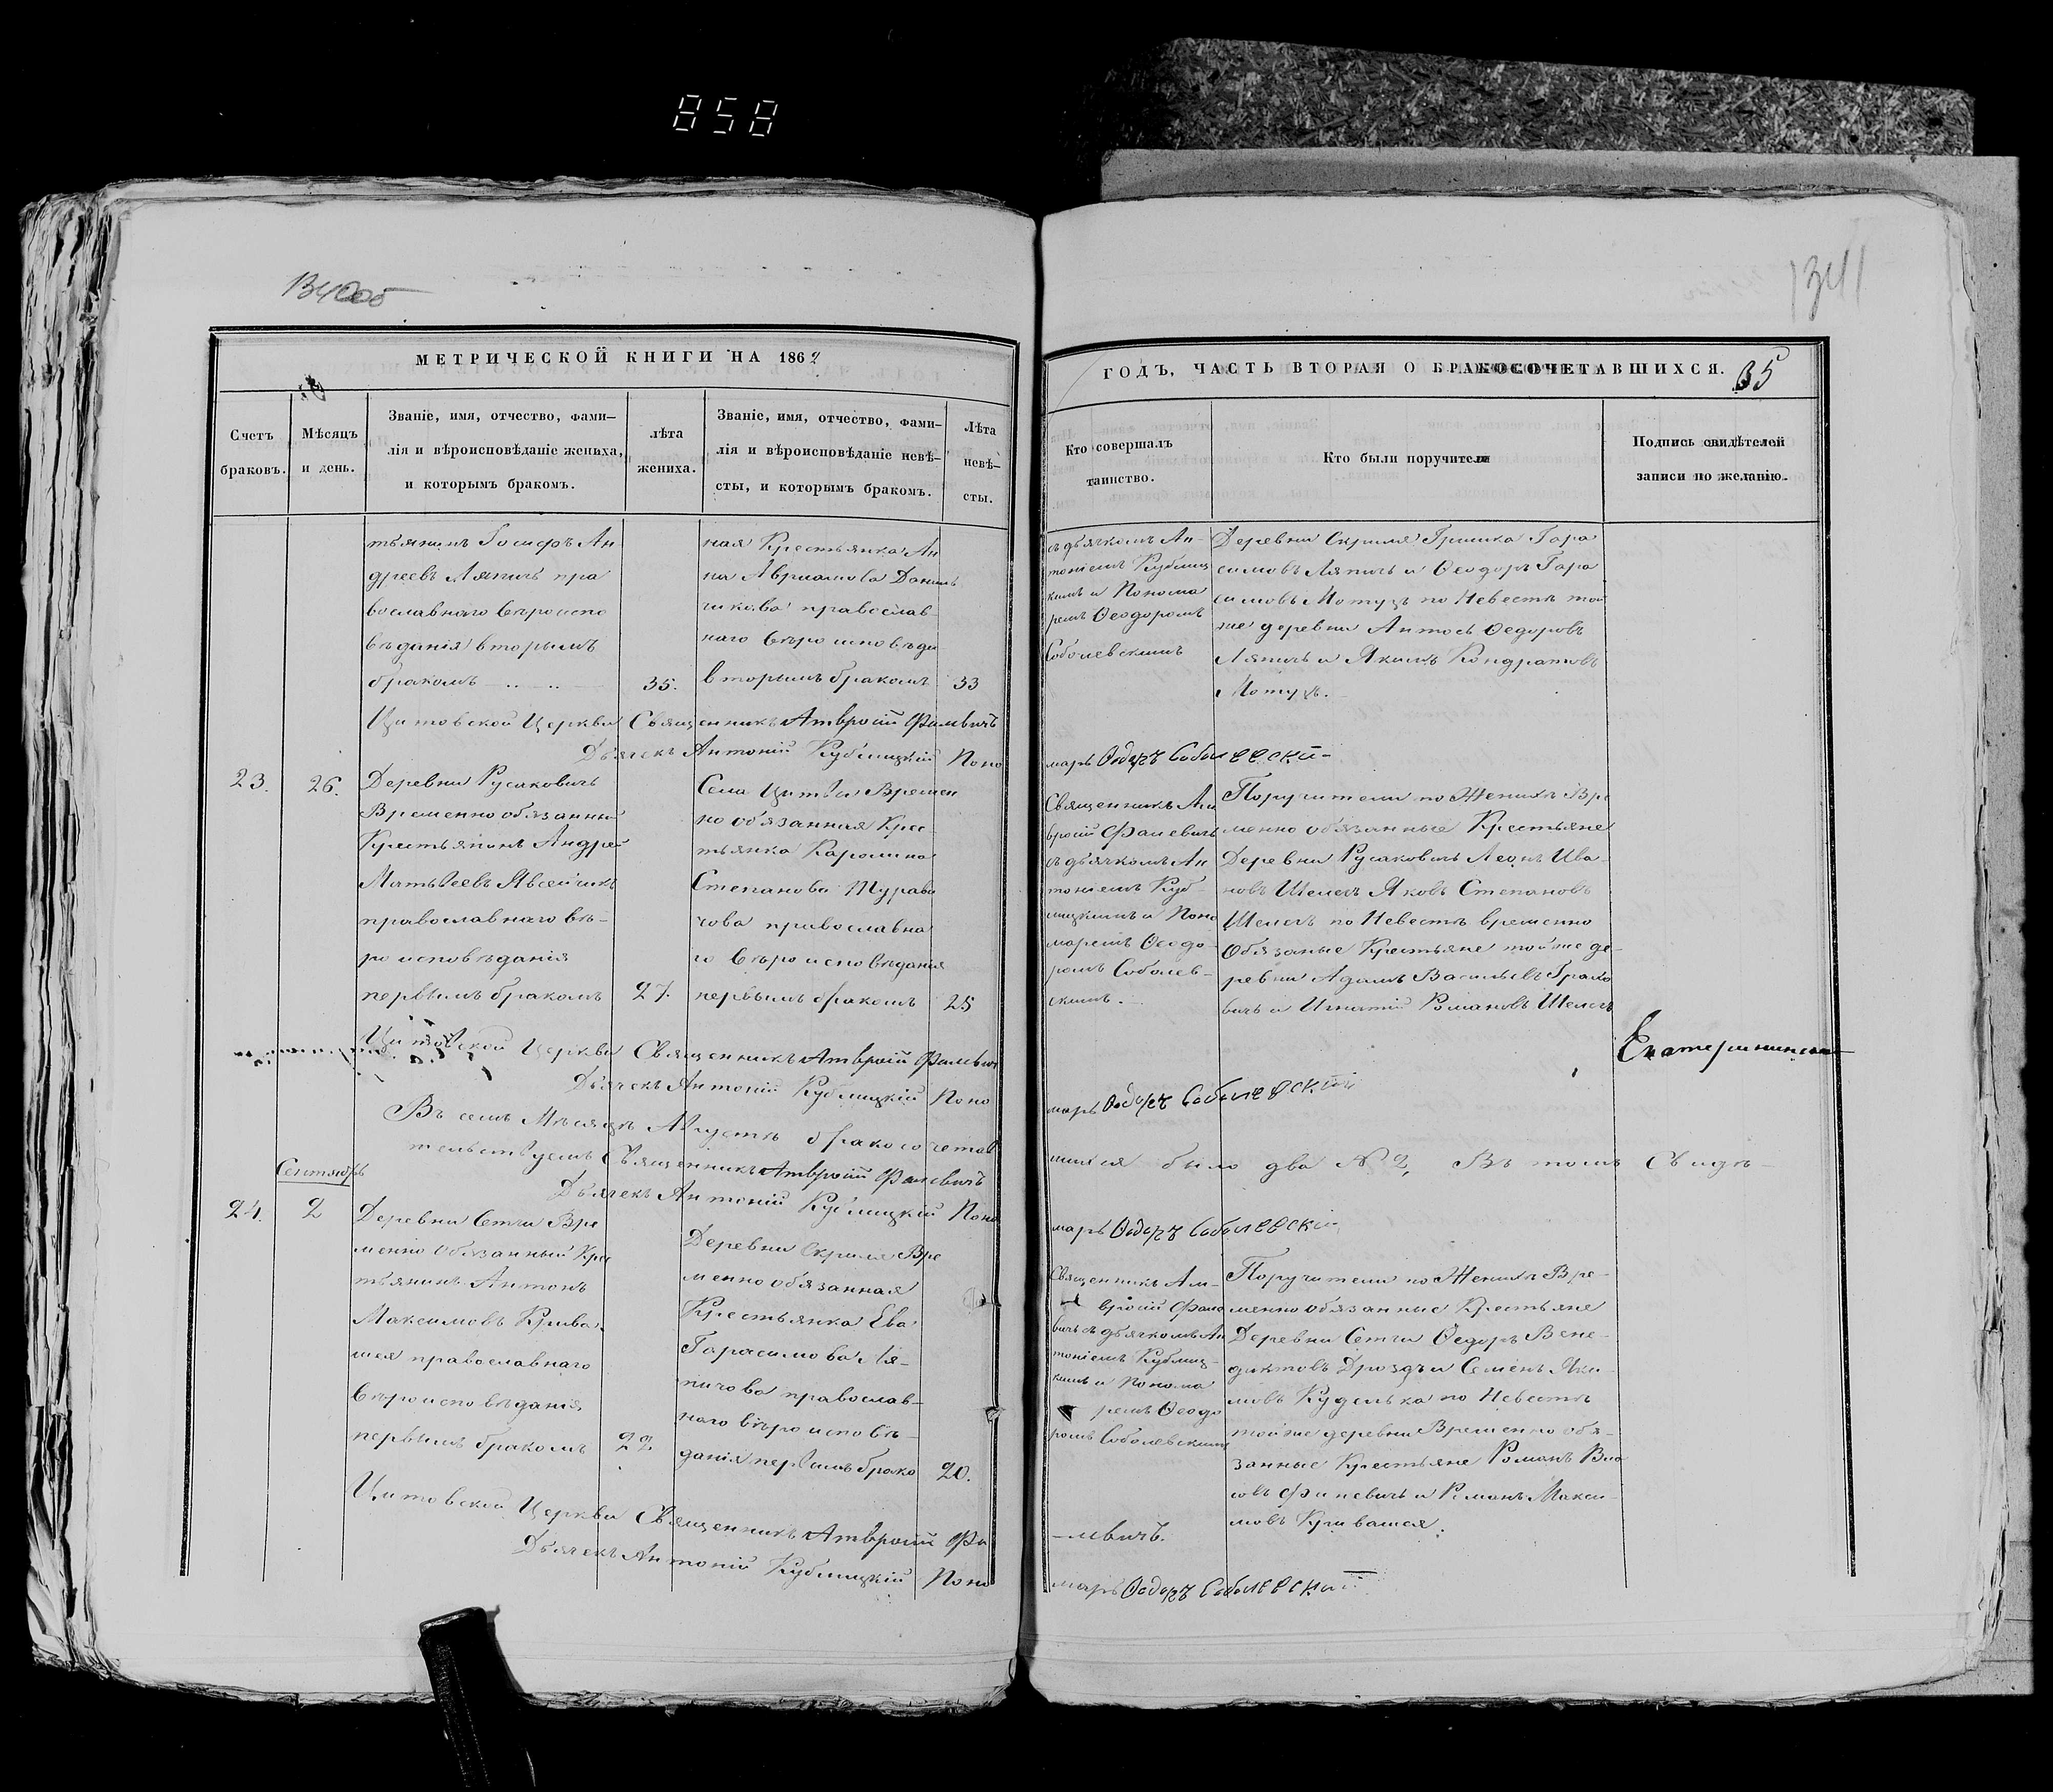 858
1341
МЕТРИЧЕСКОЙ КНИГИ НА 1862
ГОДЪ, ЧАСТЬ ВТОРАЯ О БРАКОСОЧЕТАВШИХСЯ.
35
Счетъ
браковъ.
Мѣсяцъ
и день.
Званіе, имя, отчество, фами-
лія и вѣроисповѣданіе жениха,
и которымъ бракомъ.
лѣта
жениха.
Званіе, имя, отчество, фами-
лія и вѣроисповѣданіе невѣ-
сты, и которымъ бракомъ.
Лѣта
невѣ-
сты.
Кто совершалъ
таинство.
Кто были поручители
Подпись свидѣтелей
записи по желанію.
тьянинъ Іосифъ Ан
дреевъ Ляпичъ пра
вославнаго вѣроиспо
вѣданія вторымъ
бракомъ
35.
ная Крестьянка Ан
на Авриамова Данил
чикова православ-
наго вѣроисповѣда
вторымъ бракомъ
33
съ дьячкомъ Ан-
тоніемъ Кублиц
кимъ и Понома
ремъ Ѳеодоромъ
Соболевскимъ
Деревни Скриля Гришка Гара
симовъ Ляпичъ и Ѳеодоръ Гара
симовъ Мотузъ по Невестѣ той
же деревни Антось Ѳедоровъ
Ляпичъ и Якимъ Кондратовъ
Мотузъ.
Цитовской Церкви Священникъ Амвросій Фалевичъ
Дьячекъ Антоній Кублицкій Поно
марь Ѳодоръ Соболевскій
23.
26.
Деревни Русаковичь
Временно обязанный
Крестьянинъ Андрей
Матвеевъ Авсейчикъ
православнаго вѣ-
роисповѣданія
первымъ бракомъ
27.
Села Цитвы Времен
но обязанная Крес-
тьянка Каролина
Степанова Мурав
чова православна
го вѣроисповѣданія
первымъ бракомъ
25
Священникъ Ам
вросій Фалевичъ
съ дьячкомъ Ан
тоніемъ Куб-
лицкимъ и Поно
маремъ Ѳеодо-
ромъ Соболев-
скимъ.
Поручители по Женихѣ Вре
менно обязанные Крестьяне
Деревни Русаковичь Леонъ Ива-
новъ Шелегъ Яковъ Степановъ
Шелегъ по Невестѣ временно
Обязаные Крестьяне той же де-
ревни Адамъ Васильевъ Грахо
вичъ и Игнатій Романовъ Шелегъ
Цитовской Церкви Священникъ Амвросій Фалевичъ
Дьячекъ Антоній Кублицкій Поно
марь Ѳодоръ Соболевскій
Въ семъ Мѣсяцѣ Августѣ бракосочетав
шихся было два № 2, Въ томъ Свидѣ-
тельствуемъ Священникъ Амвросій Фалевичъ
Дьячекъ Антоній Кублицкій Поно
марь Ѳодоръ Соболевскій
Сентябрь
24.
2
Деревни Сетчи Вре
менно Обязанный Крес
тьянинъ Антонъ
Максимовъ Крива-
шея православнаго
вѣроисповѣданія
первымъ бракомъ
22
Деревни Скриля Вре
менно обязанная
Крестьянка Ева
Гарасимова Ля-
пичова православ-
наго вѣроисповѣ-
данія первымъ брако
20.
Священникъ Ам-
вросій Фале
вичъ съ дьячкомъ Ан
тоніемъ Кублиц-
кимъ и Понома
ремъ Ѳеодо
ромъ Соболевскимъ
Поручители по Женихѣ Вре-
менно обязанные Крестьяне
Деревни Сетчи Ѳедоръ Вене-
диктовъ Дроздъ и Семенъ Яки-
мовъ Куделька по Невестѣ
той же деревни Временно обя-
занные Крестьяне Романъ Вла
совъ и Романъ Макси-
мовъ Кривашея.
Цитовской Церкви Священникъ Амвросій Фа
-левичъ.
Дьячекъ Антоній Кублицкій Поно
марь Ѳодоръ Соболевскій